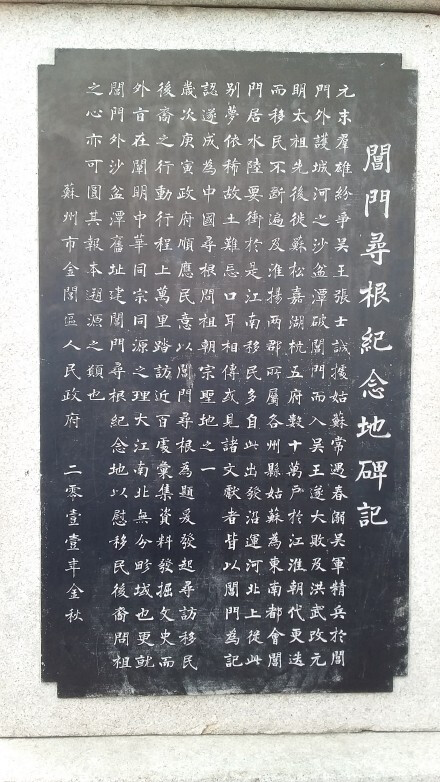 閶門尋根紀念地碑記
元末羣雄紛爭吳王張士誠據姑蘇常遇春溺吳軍精兵於閶
門外護城河之沙盆潭破閶門而入吳王遂大敗及洪武改元
明太祖先後徙蘇松嘉湖杭五府數十萬戶於江淮朝代更迭
而移民不斷遍及淮揚兩郡所屬各州縣姑蘇為東南都會閶
門居水陸要衝於是江南移民多自此出發沿運河北上從此
別夢依稀故土難忘口耳相傳或見諸文獻者皆以閶門為記
認遂成為中國尋根問祖朝宗聖地之一
歲次庚寅政府順應民意以閶門尋根為題爰發起尋訪移民
後裔之行動行程上萬里踏訪近百處彙集資料發掘文史而
外旨在闡明中華同宗同源之理大江南北無分畛域也更就
閶門外沙盆潭舊址建閶門尋根紀念地以慰移民後裔問祖
之心亦可圓其報本遡源之願也
蘇州市金閶區人民政府 二零壹壹年金秋